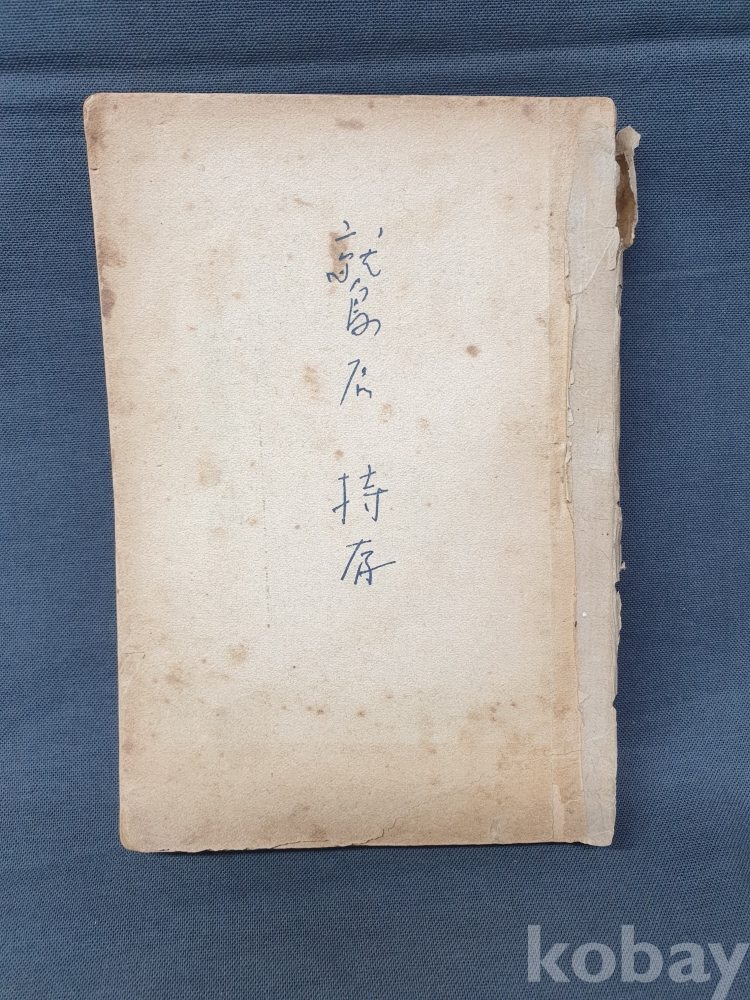 鷲 持存
kobay